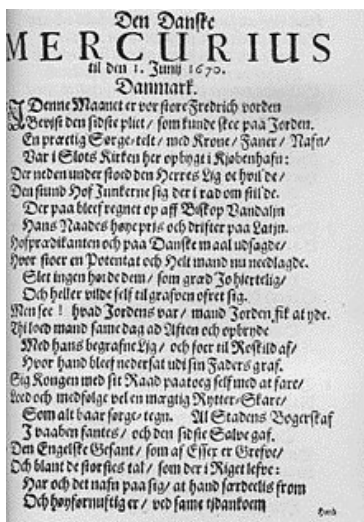 Den Danske
MERCURIUS
til den 1. Junij 1670.
Danmark.
I Denne Maanet er vor store Fredrich vorden
Beviist den sidste pliet/ som kunde skee paa Jorden.
En prætig Sørge-telt/ med Krone/ Faner/ Nafn/
Var i Slots Kirken her opbygt i Kjøbenhafn:
Der neden under stoed den Herres Lig oc hvilde/
Den stund Hof Junkerne sig der i rad om stillde.
Der paa bleef regnet op aff Biskop Vandalin
Hans Naades høye priis och drifter paa Latjn.
Hofprædikanten och paa Danske maal udsagde/
Hvor stoer en Potentat och Helt mand nu nedlagde.
Slet ingen hørde dem/ som græd Jo hiertelig/
Och heller vilde self til grafven ofret sig.
Men see! hvad Jordens var/ mand Jorden fik at yde.
Thi loed mand same dag ad Aften och opbryde
Med hans begrafne Lig/ och foer til Roskild af/
Hvor hand bleef nedersat udi sin Faders graf.
Sig Kongen med sit Raad paatoeg self med at fare/
Leed och medfølge vel en mægtig Rytter-Skare/
Som alt baar sørge-tegn. Al Stadens Borgerskaf
I vaaben fantes/ och den sidste Salve gaf.
Den Engelske Gesant/ som af Essex er Grefve/
Och blant de størstes tal/ som der i Riget lefve:
Har och det nafn paa sig/ at hand særdeelis from
Och høyfornuftig er/ ved same tid ankom